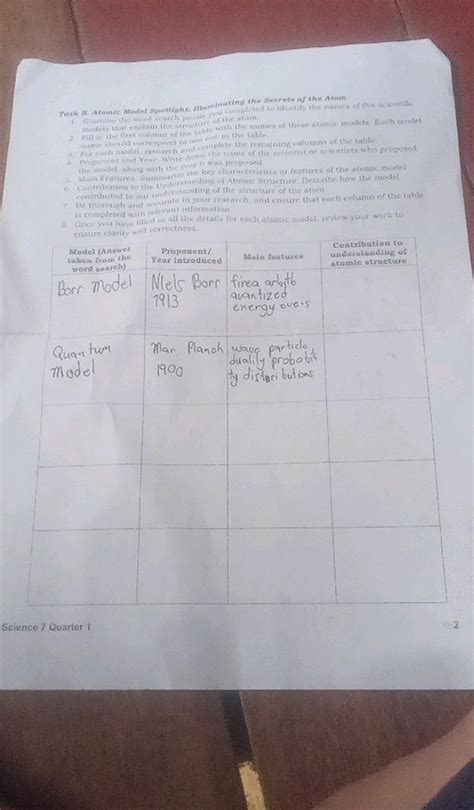 Task B. Atomic Model Spotlight: Illuminating the Secrets of the Atom
1. Examine the word search puzzle you completed to identify the names of five scientific
models that explain the structure of the atom.
2. Fill in the first column of the table with the names of these atomic models. Each model
name should correspond to one row in the table.
3. For each model, research and complete the remaining columns of the table.
4. Proponent and Year: Write down the name of the scientist or scientists who proposed
the model, along with the year it was proposed.
5. Main Features: Summarize the key characteristics or features of the atomic model.
6. Contribution to the Understanding of Atomic Structure: Describe how the model
contributed to our understanding of the structure of the atom.
7. Be thorough and accurate in your research, and ensure that each column of the table
is completed with relevant information.
8. Once you have filled in all the details for each atomic model, review your work to
ensure clarity and correctness.
Model (Answer
taken from the
word search)
Proponent/
Year introduced
Main features
Contribution to
understanding of
atomic structure
Borr Model
Niels Borr
1913
quantized
energy
Quantum
Model
Mar Planch
1900
wave particle
duality probobili
ty distributions
Science 7 Quarter 1
2